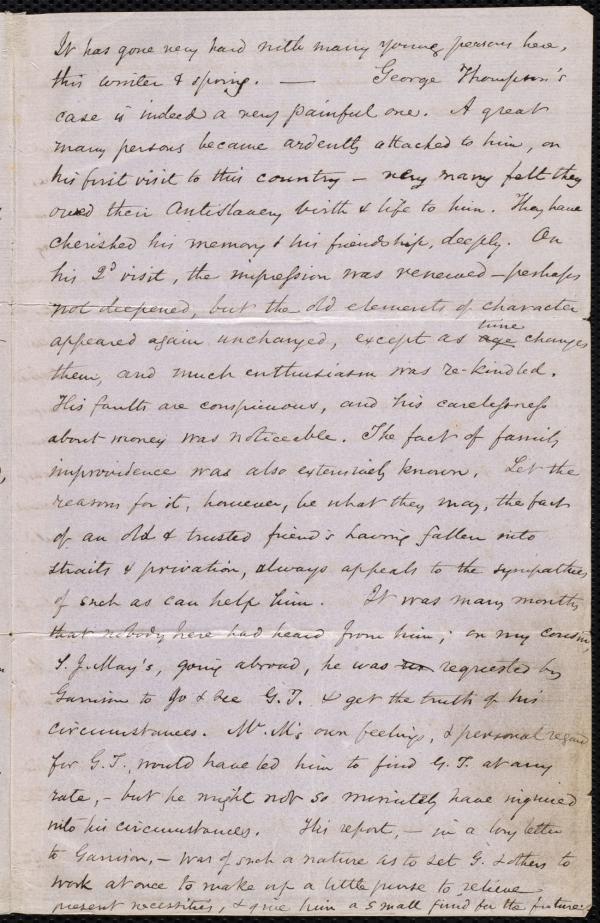 It has gone very hard with many young persons here,
this winter & spring. — George Thompson's
case is indeed a very painful one. A great
many persons became ardently attached to him, on
his first visit to this country – very many felt they
owed their Antislavery birth & life to him. They have
cherished his memory & his friendship, deeply. On
his 2d visit, the impression was renewed – perhaps
not deepened, but the old elements of character
appeared again unchanged, except as age time changes
them, and much enthusiasm was re-kindled.
His faults are conspicuous, and his carelessness
about money was noticeable. The fact of family
improvidence was also extensively known. Let the
reasons for it, however, be what they may, the fact
of an old & trusted friend's having fallen into
straits & privation, always appeals to the sympathies
of such as can help him. It was many months
that nobody here had heard from him; on my cousin
S. J. May's, going abroad, he was requested by
Garrison to go & see G. T. & get the truth of his
circumstances. Mr. M's own feelings, & personal regard
for G. T., would have led him to find G. T. at any
rate, – but he might not so minutely have inquired
into his circumstances. His report, – in a long letter
to Garrison, – was of such a nature as to set G. & others to
work at once to make up a little purse to relieve
present necessities, & give him a small fund for the future.